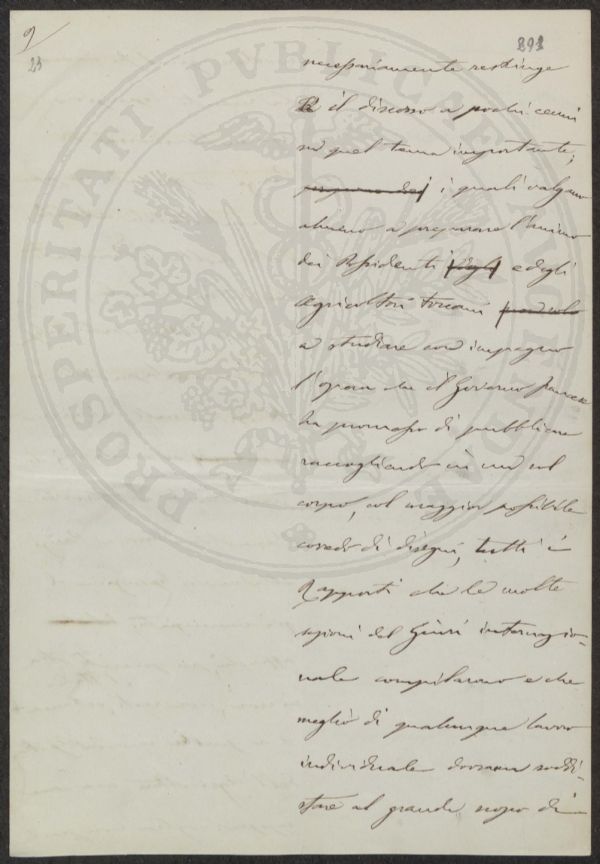 9
23
292
necessariamente restringe
il discorso a pochi cenni
su quel tema importante,
i quali valgano
almeno a preparare l'animo
dei Possidenti degli e degli
Agricoltori toscani
a studiare con impegno
l'opera che il Governo francese
ha promesso di pubblicare
raccogliendo in un sol
corpo, col maggior possibile
corredo di disegni, tutti i
Rapporti che le molte
sezioni del Giurì internazio-
nale compilarono e che
meglio di qualunque lavoro
individuale dovranno soddi-
sfare al grande scopo di
PROSPERITATI PVBLICAE AVGENDAE